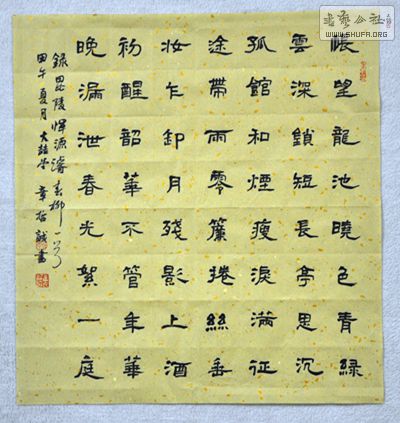 悵望龍池曉色青綠
雲深鎖短長亭思沉
孤館和煙瘦淚滿征
途帶雨零簾捲絲垂
妝乍卸月殘影上酒
初醒韶華不管年華
晚漏泄春光絮一庭
錄毘陵惲源濬春柳一首
甲午夏月大 堂章 誠書
書藝公社
WWW.SHUFA.ORG